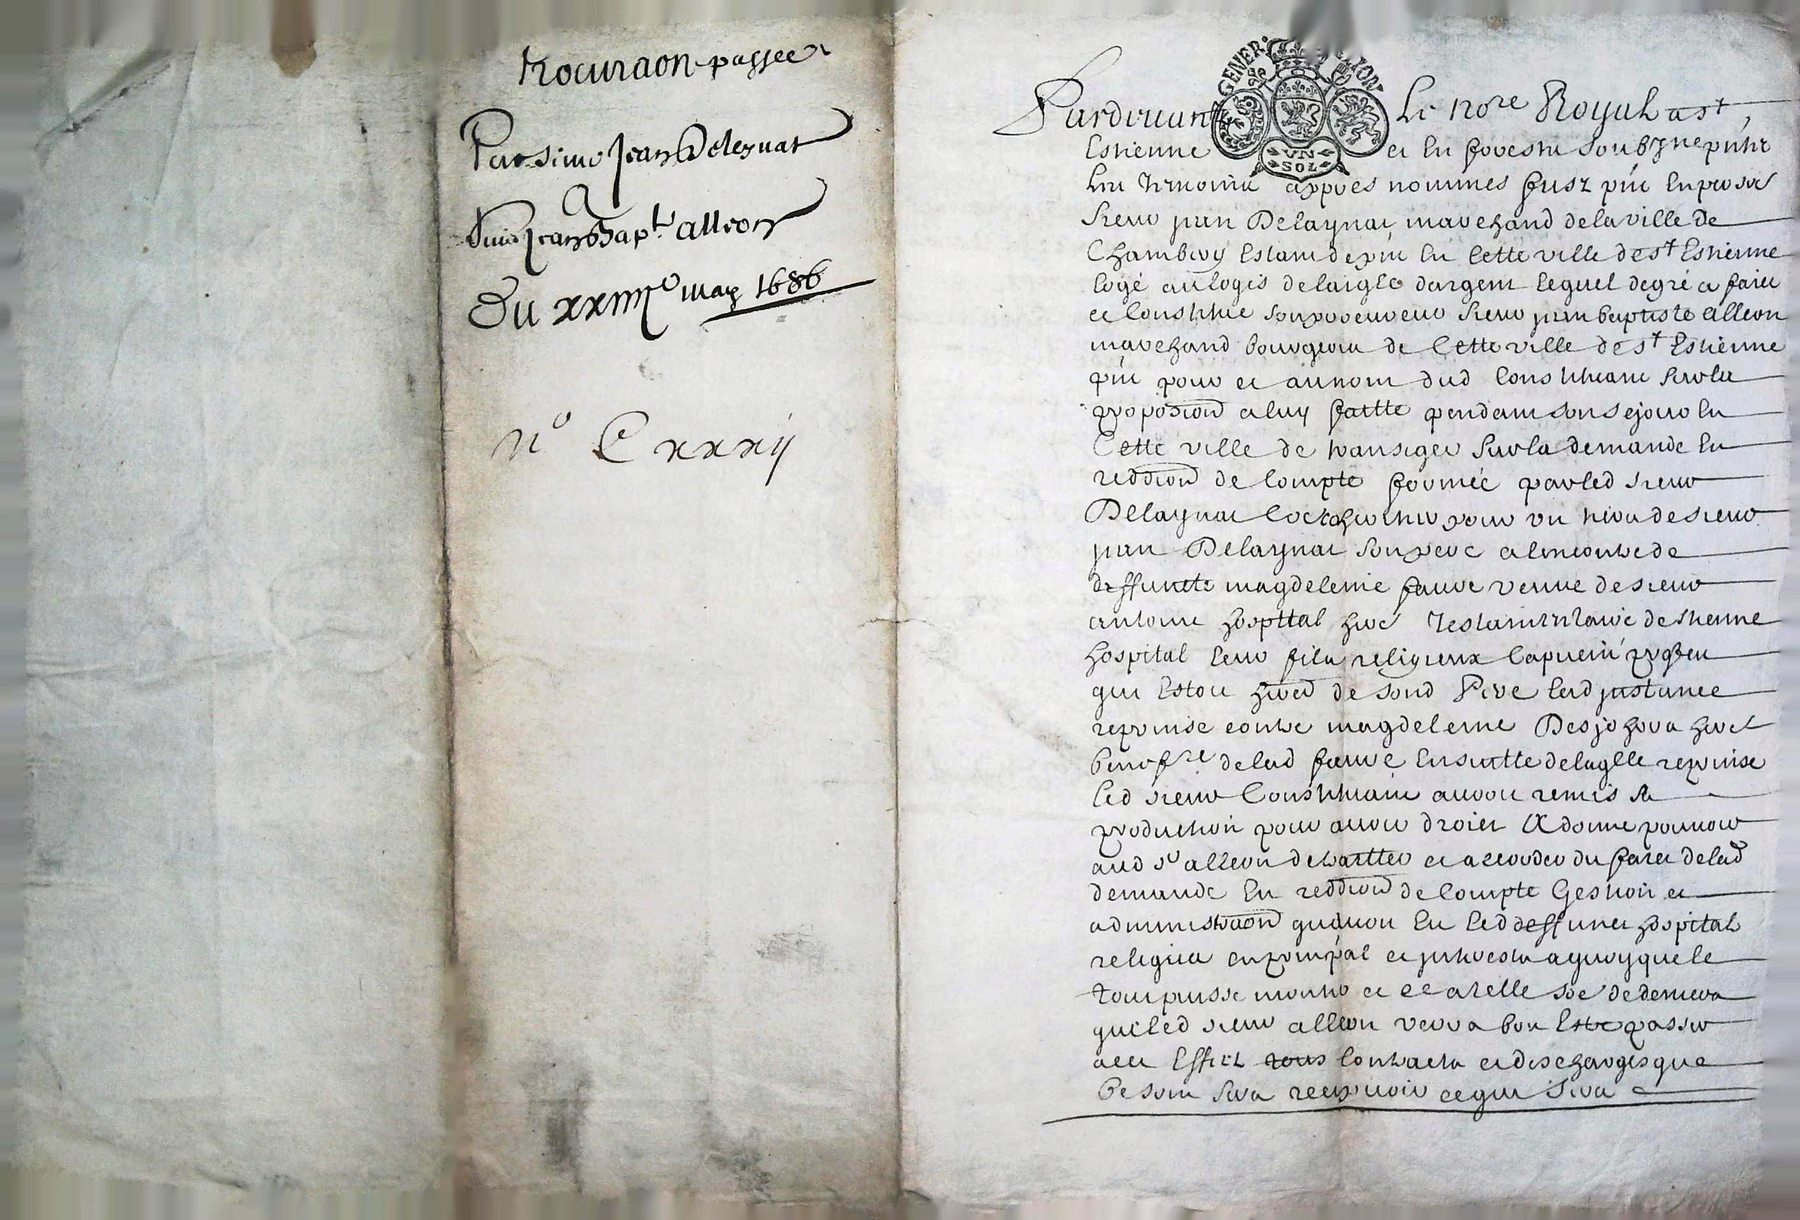 procuraon passée
Par sieur Jean Delesnat
A
Sieur Jean Bapt. alleon
Du xxiiii^e may 1686
n° C xxxij
GENER
ION
UN
SOL
Pardevant Le no^re Royal a s^t
Estienne et en forestz soubz^ne pñts
les tesmoins appres nommés fust pñt en perso^e
sieur jean Delaynat marchand de la ville de
Chambery estant de pñt en cette ville de s^t Estienne
logé au logis de laigle dargent lequel degré a faict
et constitué son procureur sieur jean baptiste alleon
marchand bourgeois de Cette ville de s^t Estienne
pñt pour et au nom dud constituant sur la
proposion a luy faitte pendant son sejour en
Cette ville de transiger sur la demande en
reddiond de compte formée par led sieur
Delaynat
jean Delaynat son pere a lencontre de
deffuncte magdeleine faure veuve de sieur
antoine hospital hers testamentaire de stienne
hospital leur fils religieux capucin
qui estoit de sond Pere lad instance
reprinse contre magdeleine Desjohers hert
benef^re de lad faure ensuitte de laqlle reprinse
led sieur Constituant auroit remis sa
production pour avoir droict A donné pouvoir
aud s^r alleon de traitter et accorder du faict de lad
demande en reddiond de compte Gestion et
administraond quauroit eu led deffunct hospital
religieux en prinpal et interests a quoy que le
tout puisse monter et ce a telle soe de deniers
que led sieur alleon verra bon estre passer
a cet effect tous contracts et descharges que
besoin sera recepvoir ce qui sera